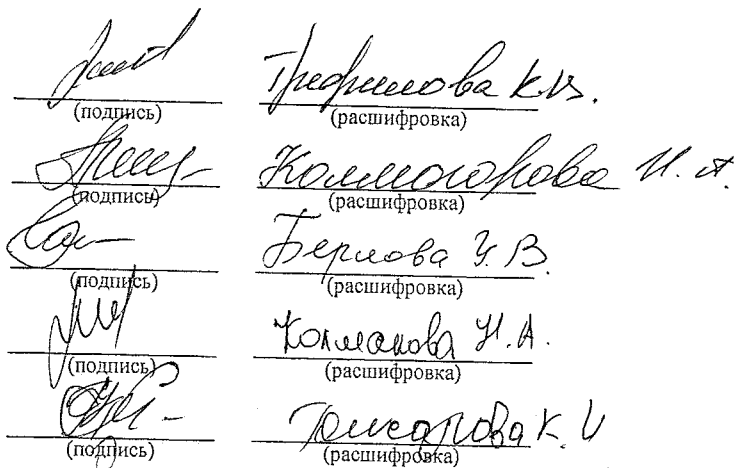 Трефилова К.В.
(подпись) (расшифровка)
Колмогорова Н. А.
(подпись) (расшифровка)
Берлова У. В.
(подпись) (расшифровка)
Колмакова Н. А.
(подпись) (расшифровка)
К. И
(подпись) (расшифровка)